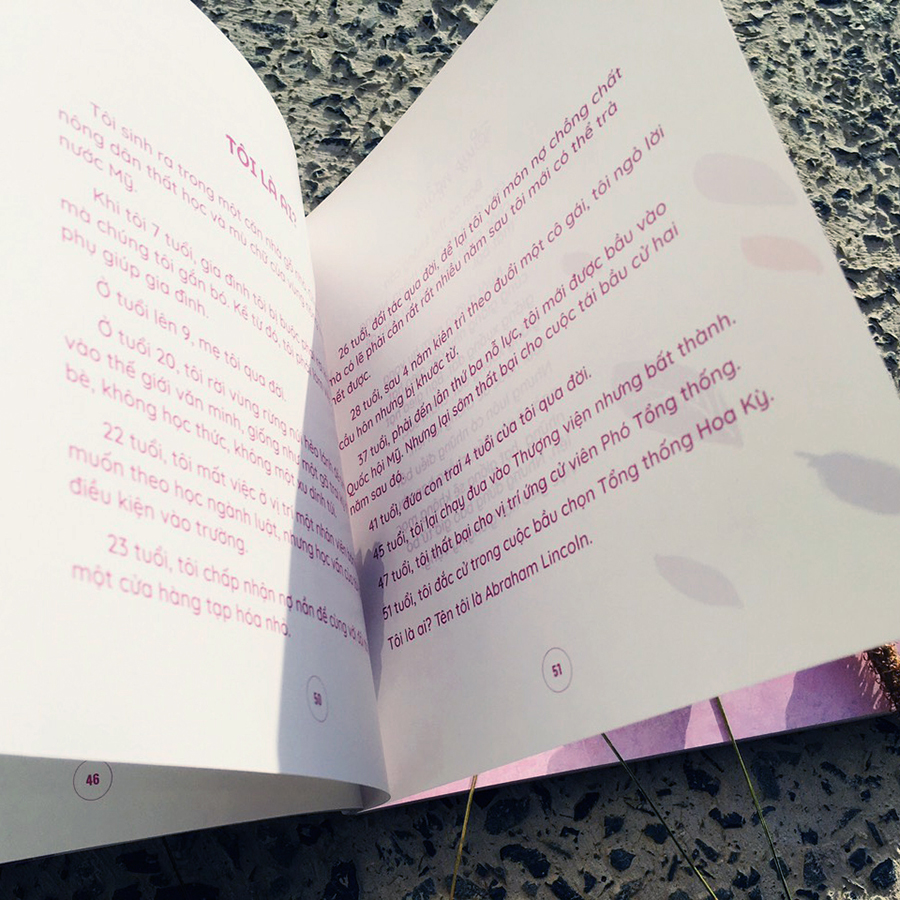 TÔI LÀ AI?
Tôi sinh ra trong một căn nhà gỗ
nông dân thất học và mù chữ của vùng
nước Mỹ.
Khi tôi 7 tuổi, gia đình tôi bị buộc
mà chúng tôi gắn bó. Kể từ đó, tôi
phụ giúp gia đình.
Ở tuổi lên 9, mẹ tôi qua đời.
Ở tuổi 20, tôi rời vùng rừng núi hẻo lánh
vào thế giới văn minh, giống như một gã trai
bè, không học thức, không một xu dính túi.
22 tuổi, tôi mất việc ở vị trí một nhân viên
muốn theo học ngành luật, nhưng học vấn
điều kiện vào trường.
23 tuổi, tôi chấp nhận nợ nần để cùng với
một cửa hàng tạp hóa nhỏ.
50
46
26 tuổi, đối tác qua đời, để lại tôi với món nợ chồng chất
mà có lẽ phải cần rất rất nhiều năm sau tôi mới có thể trả
hết được.
28 tuổi, sau 4 năm kiên trì theo đuổi một cô gái, tôi ngỏ lời
cầu hôn nhưng bị khước từ.
37 tuổi, phải đến lần thứ ba nỗ lực, tôi mới được bầu vào
Quốc hội Mỹ. Nhưng lại sớm thất bại cho cuộc tái bầu cử hai
năm sau đó.
41 tuổi, đứa con trai 4 tuổi của tôi qua đời.
45 tuổi, tôi lại chạy đua vào Thượng viện nhưng bất thành.
47 tuổi, tôi thất bại cho vị trí ứng cử viên Phó Tổng thống.
51 tuổi, tôi đắc cử trong cuộc bầu chọn Tổng thống Hoa Kỳ.
Tôi là ai? Tên tôi là Abraham Lincoln.
51